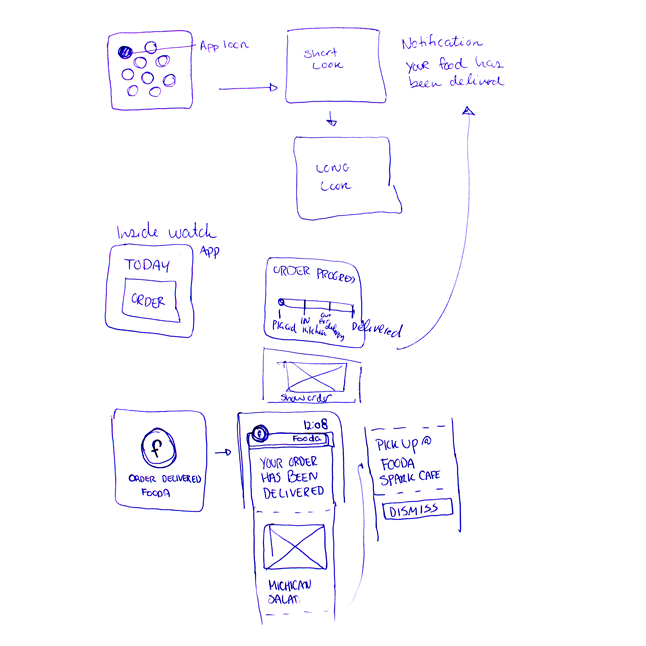 App Icon
Short
Look
Notification
Your food has
been delivered
LONG
LOOK
Inside watch
APP
TODAY
ORDER
ORDER PROGRESS
Placed
IN
Kitchen
out
for
delivery
Delivered
Show order
f
ORDER DELIVERED
FOODA
12:08
f
Fooda
YOUR ORDER
HAS BEEN
DELIVERED
MICHICAN
SALAT
PICK UP @
FOODA
SPARK CAFE
DISMISS